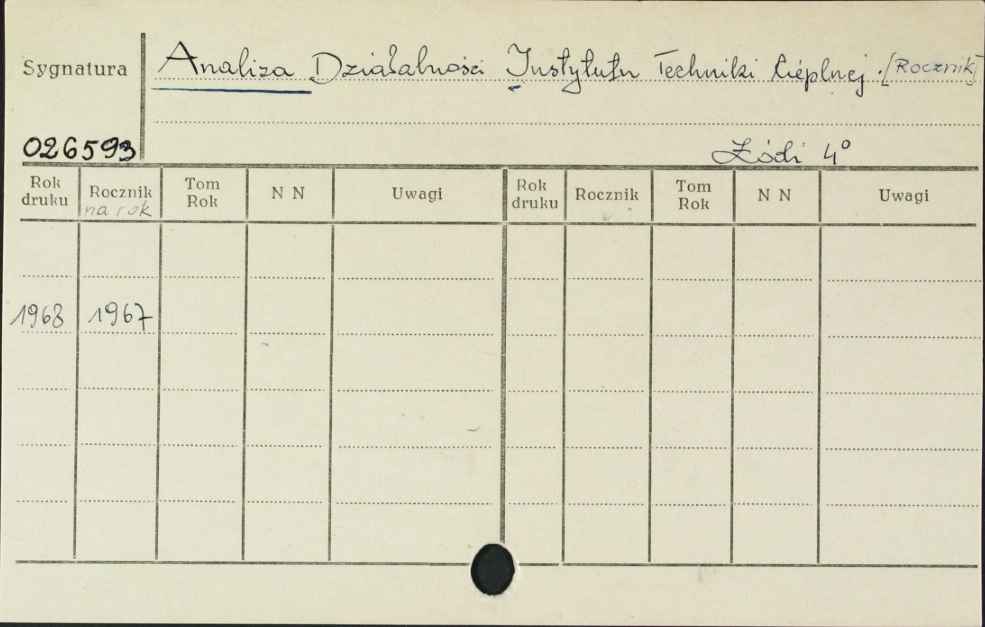 Sygnatura
Analiza Działalności Instytutu Techniki Cieplnej. [Rocznik]
026593
Łódź 4°
Rok druku Rocznik na rok Tom Rok N N Uwagi Rok druku Rocznik Tom Rok N N Uwagi
1968 1967